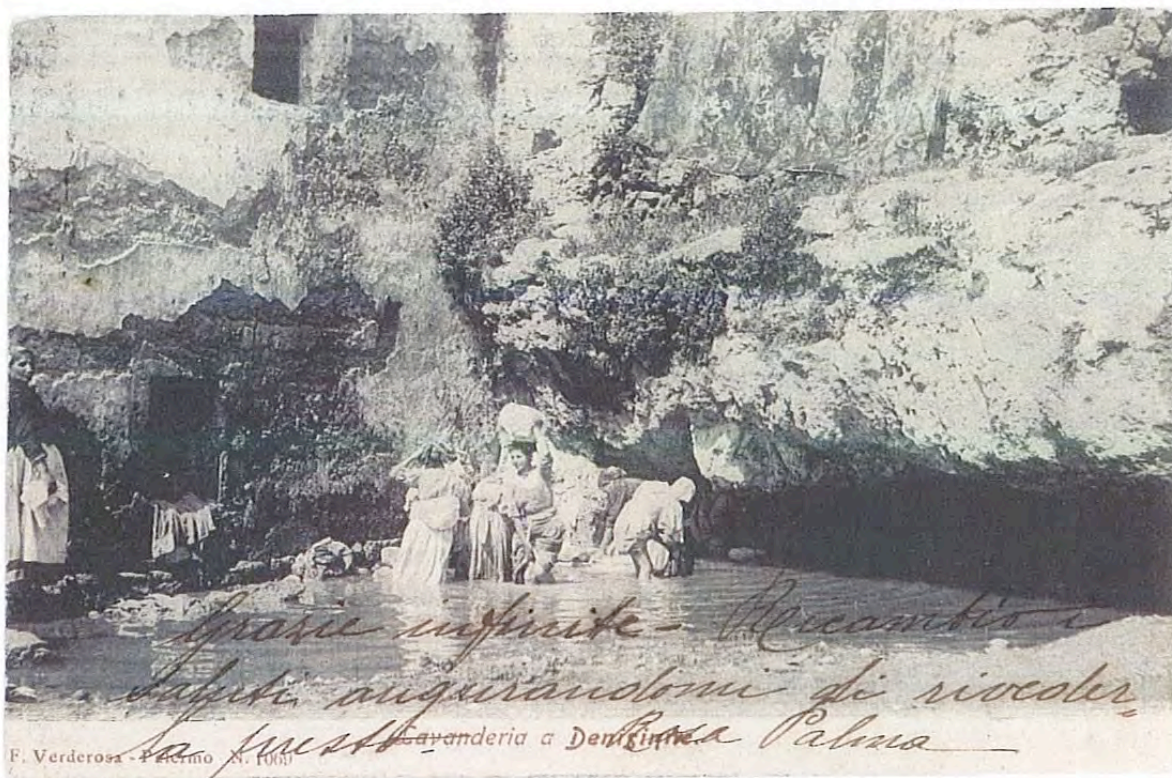 Grazie infinite - Ricambio i
saluti, augurandomi di riveder=
la presto - Rosa Palma
Lavanderia a Denisinni
F. Verderosa - Palermo N. 1069